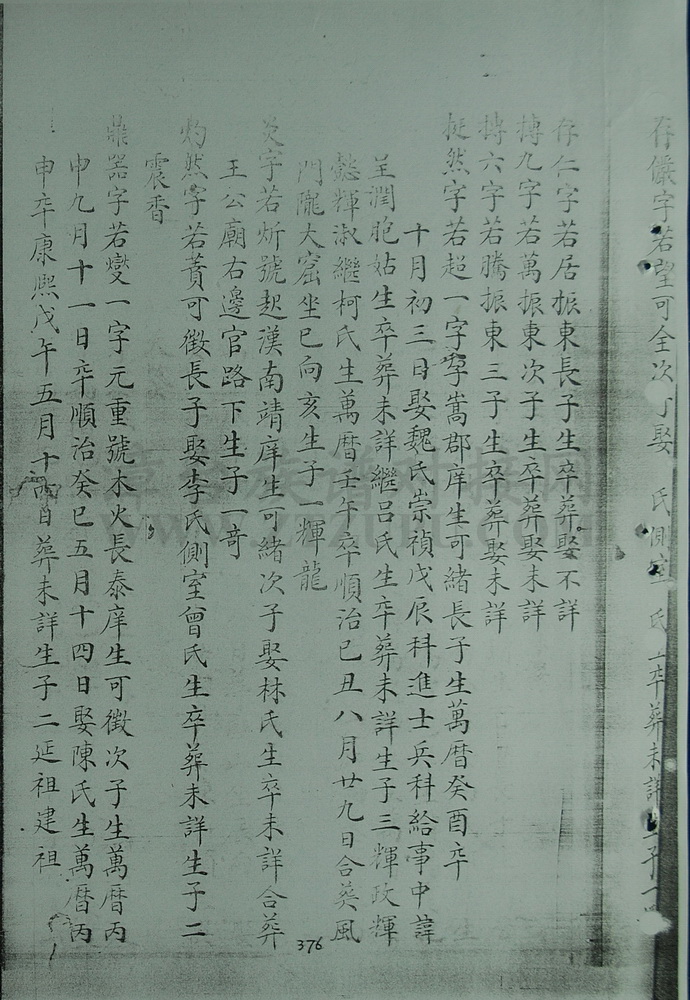 存儼字若望可全次丁娶 氏側室 氏 卒葬未詳 子一
存仁字若居振東長子生卒葬娶不詳
摶九字若萬振東次子生卒葬娶未詳
摶六字若騰振東三子生卒葬娶未詳
挺然字若超一字孚嵩郡庠生可緒長子生萬曆癸酉卒
十月初三日娶魏氏崇禎戊辰科進士兵科給事中諱
呈潤胞姑生卒葬未詳繼呂氏生卒葬未詳生子三輝政輝
懿輝淑繼柯氏生萬曆壬午卒順治己丑八月廿九日合葬風
門隴大窟坐巳向亥生子一輝龍
炎字若炘號起漢南靖庠生可緒次子娶林氏生卒未詳合葬
王公廟右邊官路下生子一奇
灼然字若蕡可徵長子娶李氏側室曾氏生卒葬未詳生子二
震香
鼎器字若燮一字元重號木火長泰庠生可徵次子生萬曆丙
申九月十一日卒順治癸巳五月十四日娶陳氏生萬曆丙
申卒康熙戊午五月十 日葬未詳生子二延祖建祖
376